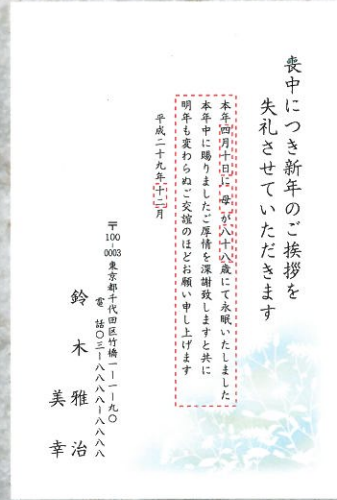 喪中につき新年のご挨拶を
失礼させていただきます
本年四月十日に 母 が八十八歳にて永眠いたしました
本年中に賜りましたご厚情を深謝致しますと共に
明年も変わらぬご交誼のほどお願い申し上げます
平成二十九年十二月
〒100-0003 東京都千代田区竹橋一-一-九〇
電 話〇三-八八八八-八八八八
鈴 木 雅 治
美 幸